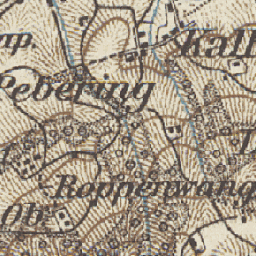 mp.
Kall
Pebering
Roppenwang
Ob.